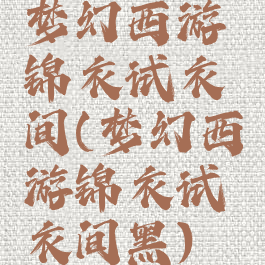 梦幻西游
锦衣试衣
间(梦幻西
游锦衣试
衣间黑)